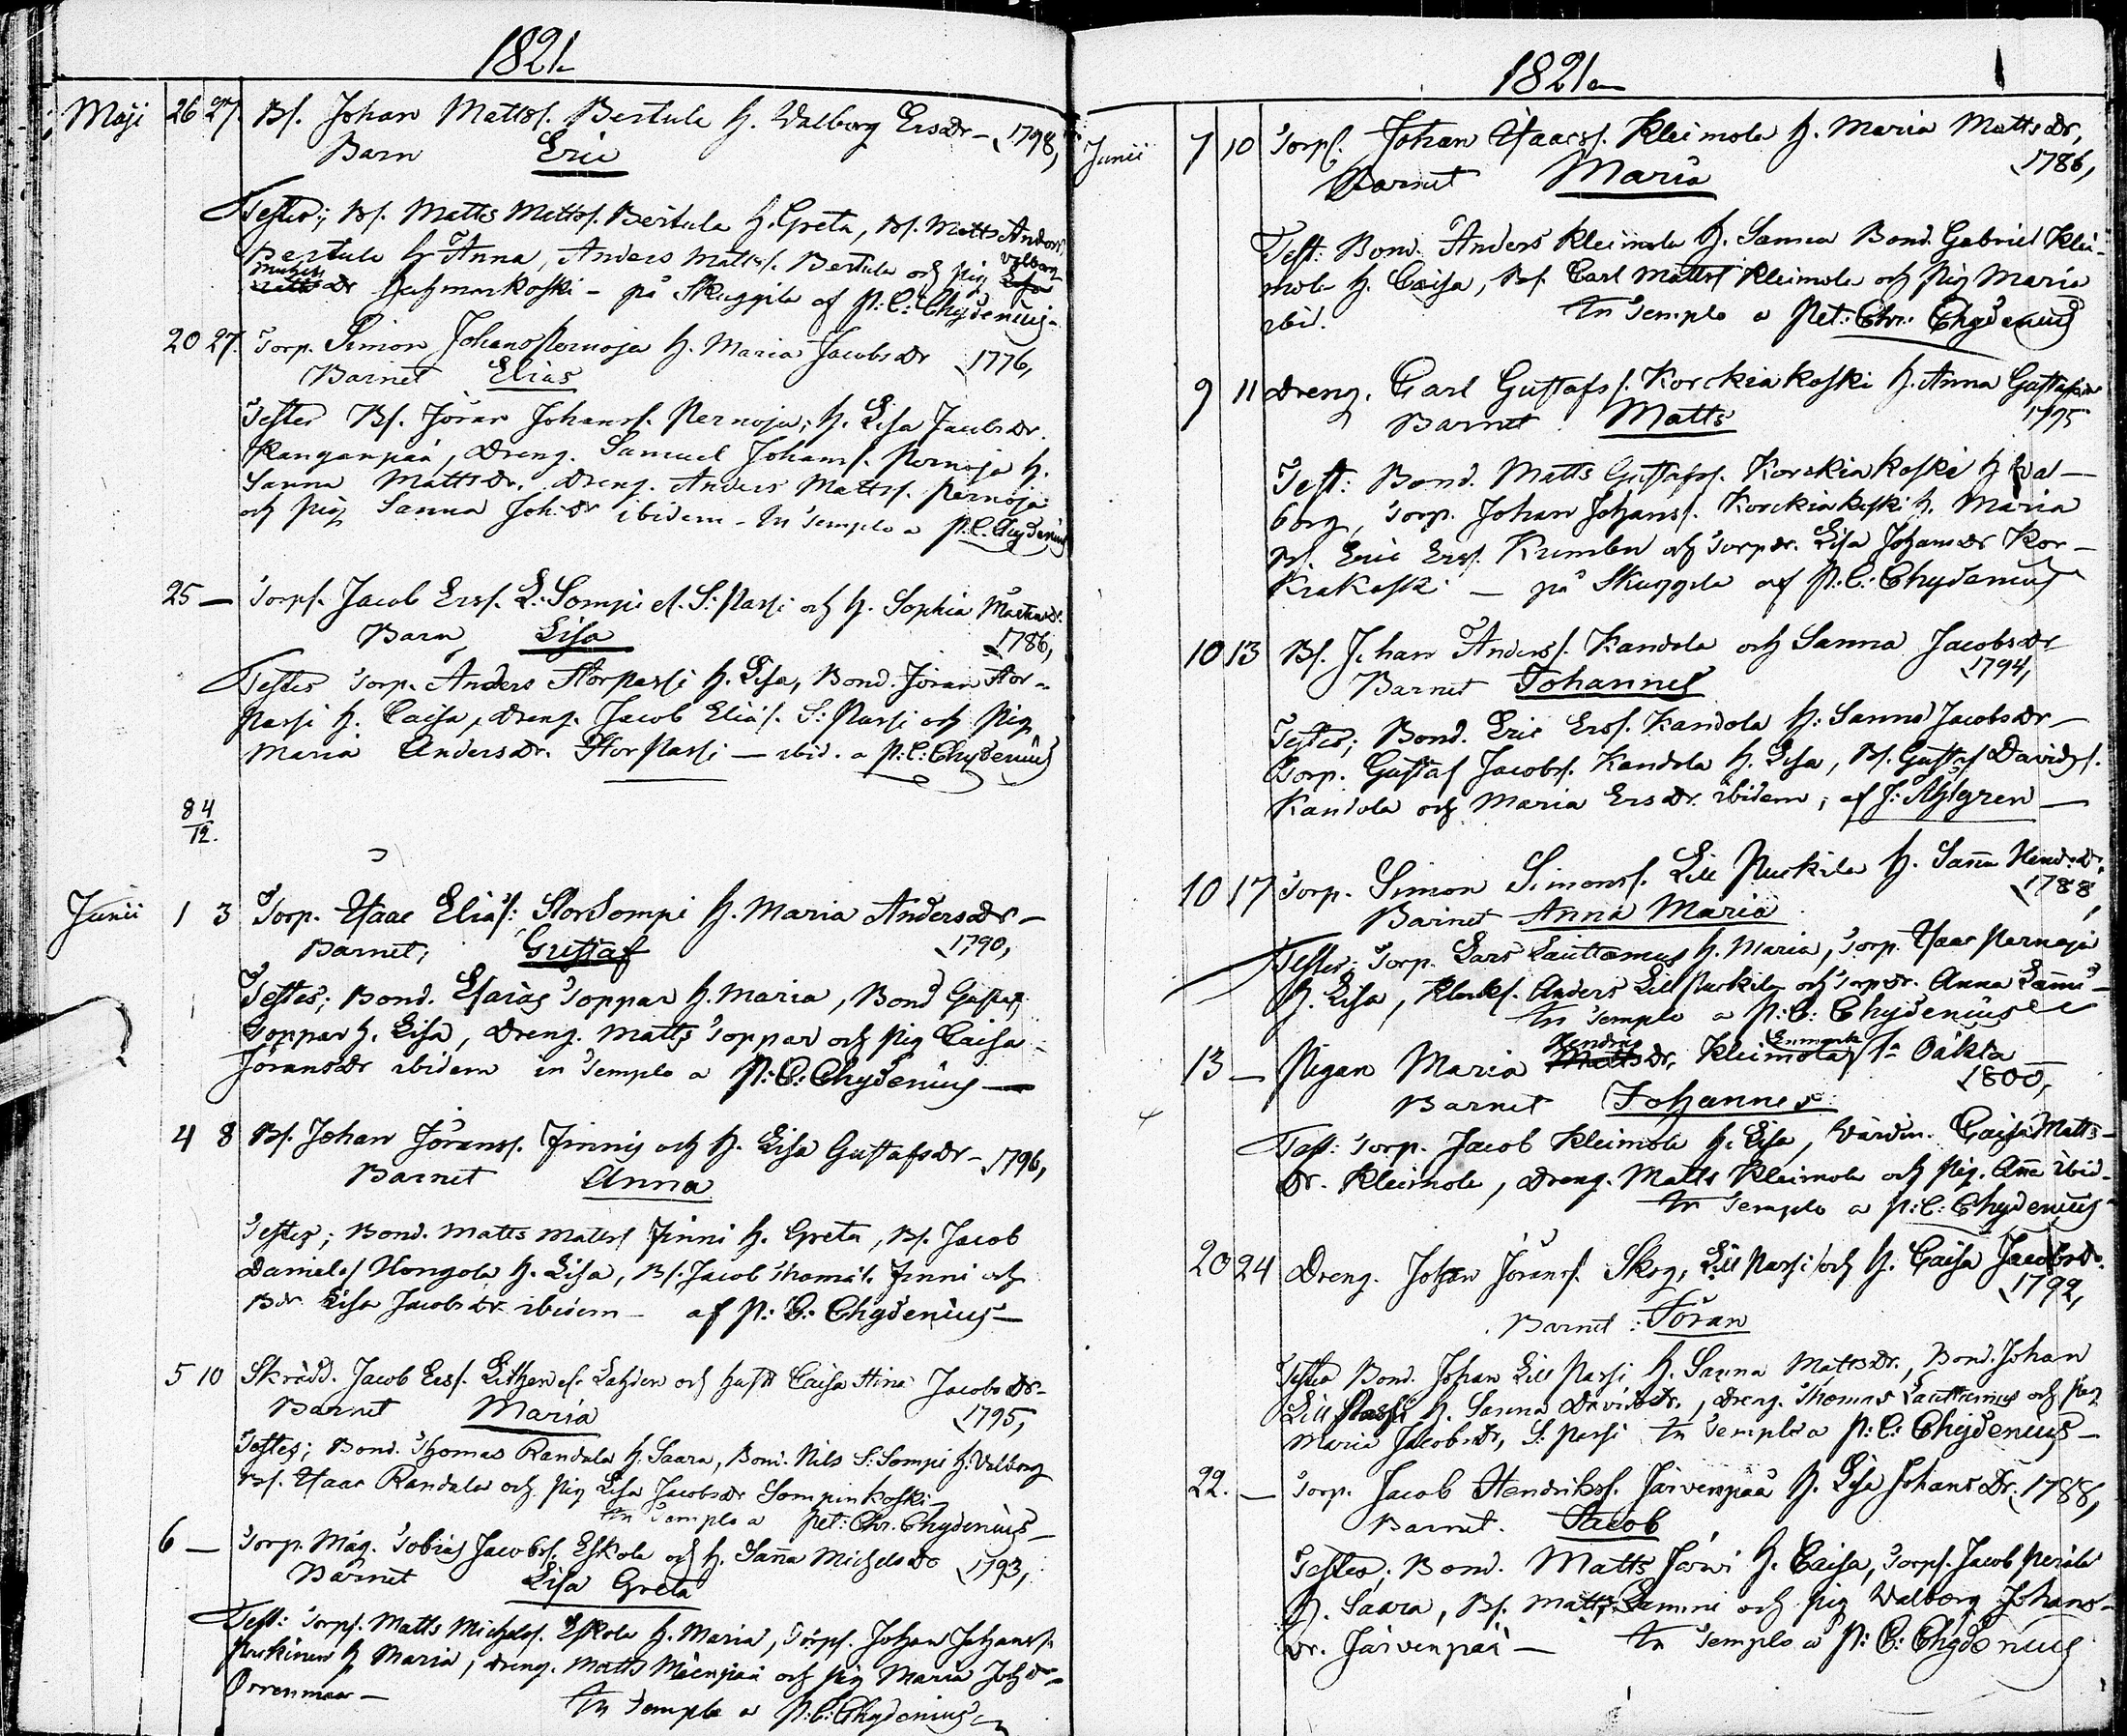 1821
Maji 26 27. Bs. Johan Mattss. Bertula h. Walborg Ersdr - 1798,
Barn Eric
Testes; Bs. Matts Mattss. Bertula h. Greta, Bs. Matts Anders
Bertula h Anna, Anders Mattss. Bertula och pig Valborg
Michelsdr - på Skuggila af P: C: Chydenius -
20 27. Torp. Simon Johans Pernoja h. Maria Jacobsdr 1776,
Barnet Elias
Testes Bs. Jöran Johanss. Pernoja, h. Lisa Jacobsdr.
Kanganpää, Dreng. Samuel Johanss. Pernoja h.
Sanna Mattsdr. Dreng. Anders Mattss. Pernoja
och pig Sanna Joh:dr ibidem - In Templo a P. C. Chydenius
25 — Torps. Jacob Erss. L: Sompi el. S: Passi och h. Sophia
Barn Lisa 1786,
Testes Torp. Anders Storpassi h. Lisa, Bond. Jöran Stor-
passi h. Caisa, Dreng. Jacob Eliass. S: Passi och pig
Maria Andersdr. Storpassi — ibid. a P: C: Chydenius
84
12.
Junii 1 3 Torp. Isaac Eliass: StorSompi h. Maria Andersdr —
Barnet; Gustaf 1790,
Testes; Bond. Esaias Toppar h. Maria, Bond Gustaf
Toppar h. Lisa, Dreng. Matts Toppar och pig Caisa
Jöransdr ibidem in Templo a P: C: Chydenius —
4 8 Bs. Johan Jöranss. Finnis och h. Lisa Gustafsdr - 1796,
Barnet Anna
Testes; Bond. Matts Mattss Finni h. Greta, Bs. Jacob
Daniels Hongola h. Lisa, Bs. Jacob Thomas. Finni och
Bdr Lisa Jacobsdr ibidem — af P: C: Chydenius —
5 10 Skrädd. Jacob Erss. Lithen el. Lahden och hust Caisa Stina Jacobsdr -
Barnet Maria 1795,
Testes; Bond. Thomas Randala h. Saara, Bond. Nils S: Sompi h. Valborg
Bs. Isaac Randala och pig Lisa Jacobsdr Sompinkoski -
In Templo a Pet: Chr. Chydenius —
6 — Torp. Mag. Tobias Jacobss. Eskola och h. Sanna Michelsdr 1793,
Barnet Lisa Greta
Test: Torps. Matts Michelss. Eskola h. Maria, Torps. Johan Johanss.
Puskinen h Maria, Dreng. Matts Mäenpää och pig Maria Johdr -
Orrenmaa —
In Templo a P: C: Chydenius
1821
Junii 7 10 Torps. Johan Isaacss. Kleimola h. Maria Mattsdr,
Barnet Maria 1786,
Test: Bond. Anders Kleimola h. Sanna Bond. Gabriel Klei-
mola h. Caisa, Bs. Carl Mattss Kleimola och pig Maria
ibid. In Templo a Pet: Chr: Chydenius
9 11 Dreng. Carl Gustafss. Korckiakoski h. Anna Gustafsdr
Barnet Matts 1775
Test: Bond. Matts Gustafss. Korckiakoski h Val-
borg, Torp. Johan Johanss. Korckiakoski h. Maria
Bs. Eric Erss. Krumbu och Torpdr. Lisa Johansdr Kor-
kiakoski — på Skuggila af P: C: Chydenius
10 13 Bs. Johan Anderss. Kandola och Sanna Jacobsdr
Barnet Johannes 1794,
Testes; Bond. Eric Erss. Kandola h: Sanna Jacobsdr —
Torp. Gustaf Jacobss. Kandola h. Lisa, Bs. Gustaf Davidss.
Kandola och Maria Ersdr. ibidem; af J: Ahlgren —
10 17 Torp. Simon Simonss. Lill Puskila h. Sanna Hendr:dr
Barnet Anna Maria 1788,
Testes; Torp. Lars Lauttamus h. Maria, Torp. Isaac Pernoja
h. Lisa, Klocks. Anders Lill Puskila och Torpdr. Anna
In Templo a P: C: Chydenius
13 — Pigan Maria Hendrics Mattsdr. Kleimola
Barnet Johannes 1800,
Test: Torp. Jacob Kleimola h. Lisa, Värdin. Caisa Matts-
dr. Kleimola, Dreng. Matts Kleimola och pig. Anna ibid -
In Templo a P: C: Chydenius
20 24 Dreng. Johan Jöranss. Skog, Lill Passi och h. Caisa Jacobsdr.
1792,
Barnet: Jöran
Testes Bond. Johan Lill Passi h. Sanna Mattsdr., Bond. Johan
Lill Passi h. Sanna Davidsdr., Dreng. Thomas Lauttamus och pig
Maria Jacobsdr, S: Passi In Templo a P: C: Chydenius —
22. — Torp. Jacob Hendrikss. Järvenpää h. Lisa Johansdr. 1788,
Barnet. Jacob
Testes; Bond. Matts Järvi h. Caisa, Torps. Jacob Perälä
h. Saara, Bs. Matts Lammi och pig Walborg Johans-
dr. Järvenpää — In Templo a P: C: Chydenius